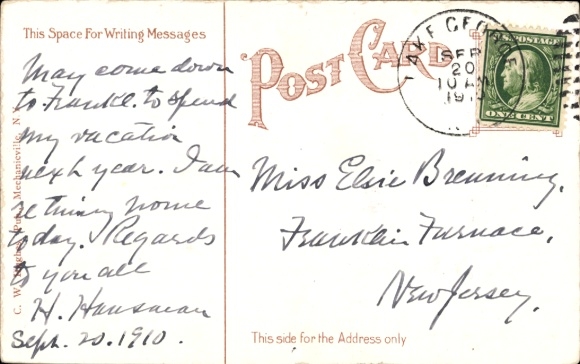 This Space For Writing Messages
May come down
to Frankl. to spend
my vacation
next year. I am
returning home
today. Regards
to you all
H. Hausman
Sept. 20. 1910.
C. W. Hughes, Pub., Mechanicville, N.
POST CARD
LAKE GEORGE
SEP
20
10 A
191
U.S. POSTAGE
ONE CENT
Miss Elsie Brenning.
Franklin Furnace,
New Jersey.
This side for the Address only